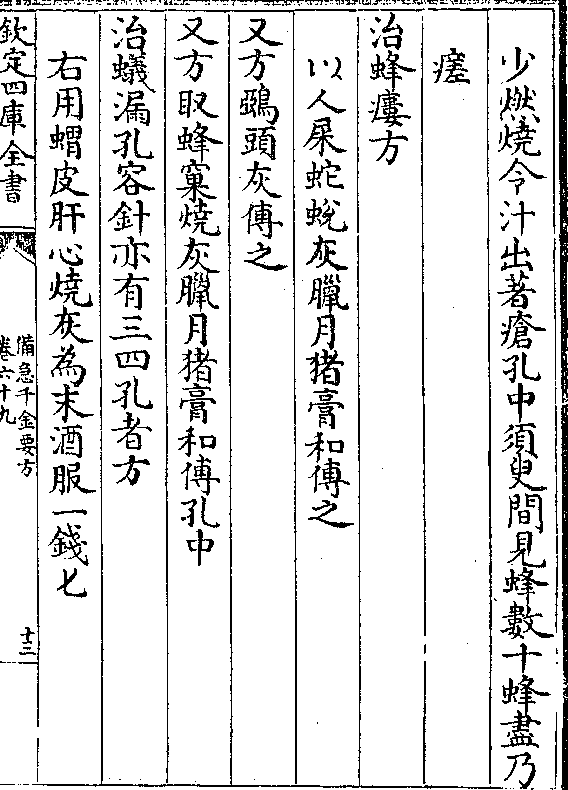 少燃燒令汁出著瘡孔中須臾間見蜂數十蜂盡乃
瘥
治蜂瘻方
以人屎蛇蛻灰臘月猪膏和傅之
又方鵶頭灰傅之
又方取蜂窠燒灰臘月猪膏和傅孔中
治蟻漏孔容針亦有三四孔者方
右用蝟皮肝心燒灰為末酒服一錢匕
欽定四庫全書
備急千金要方
卷六十九
十三